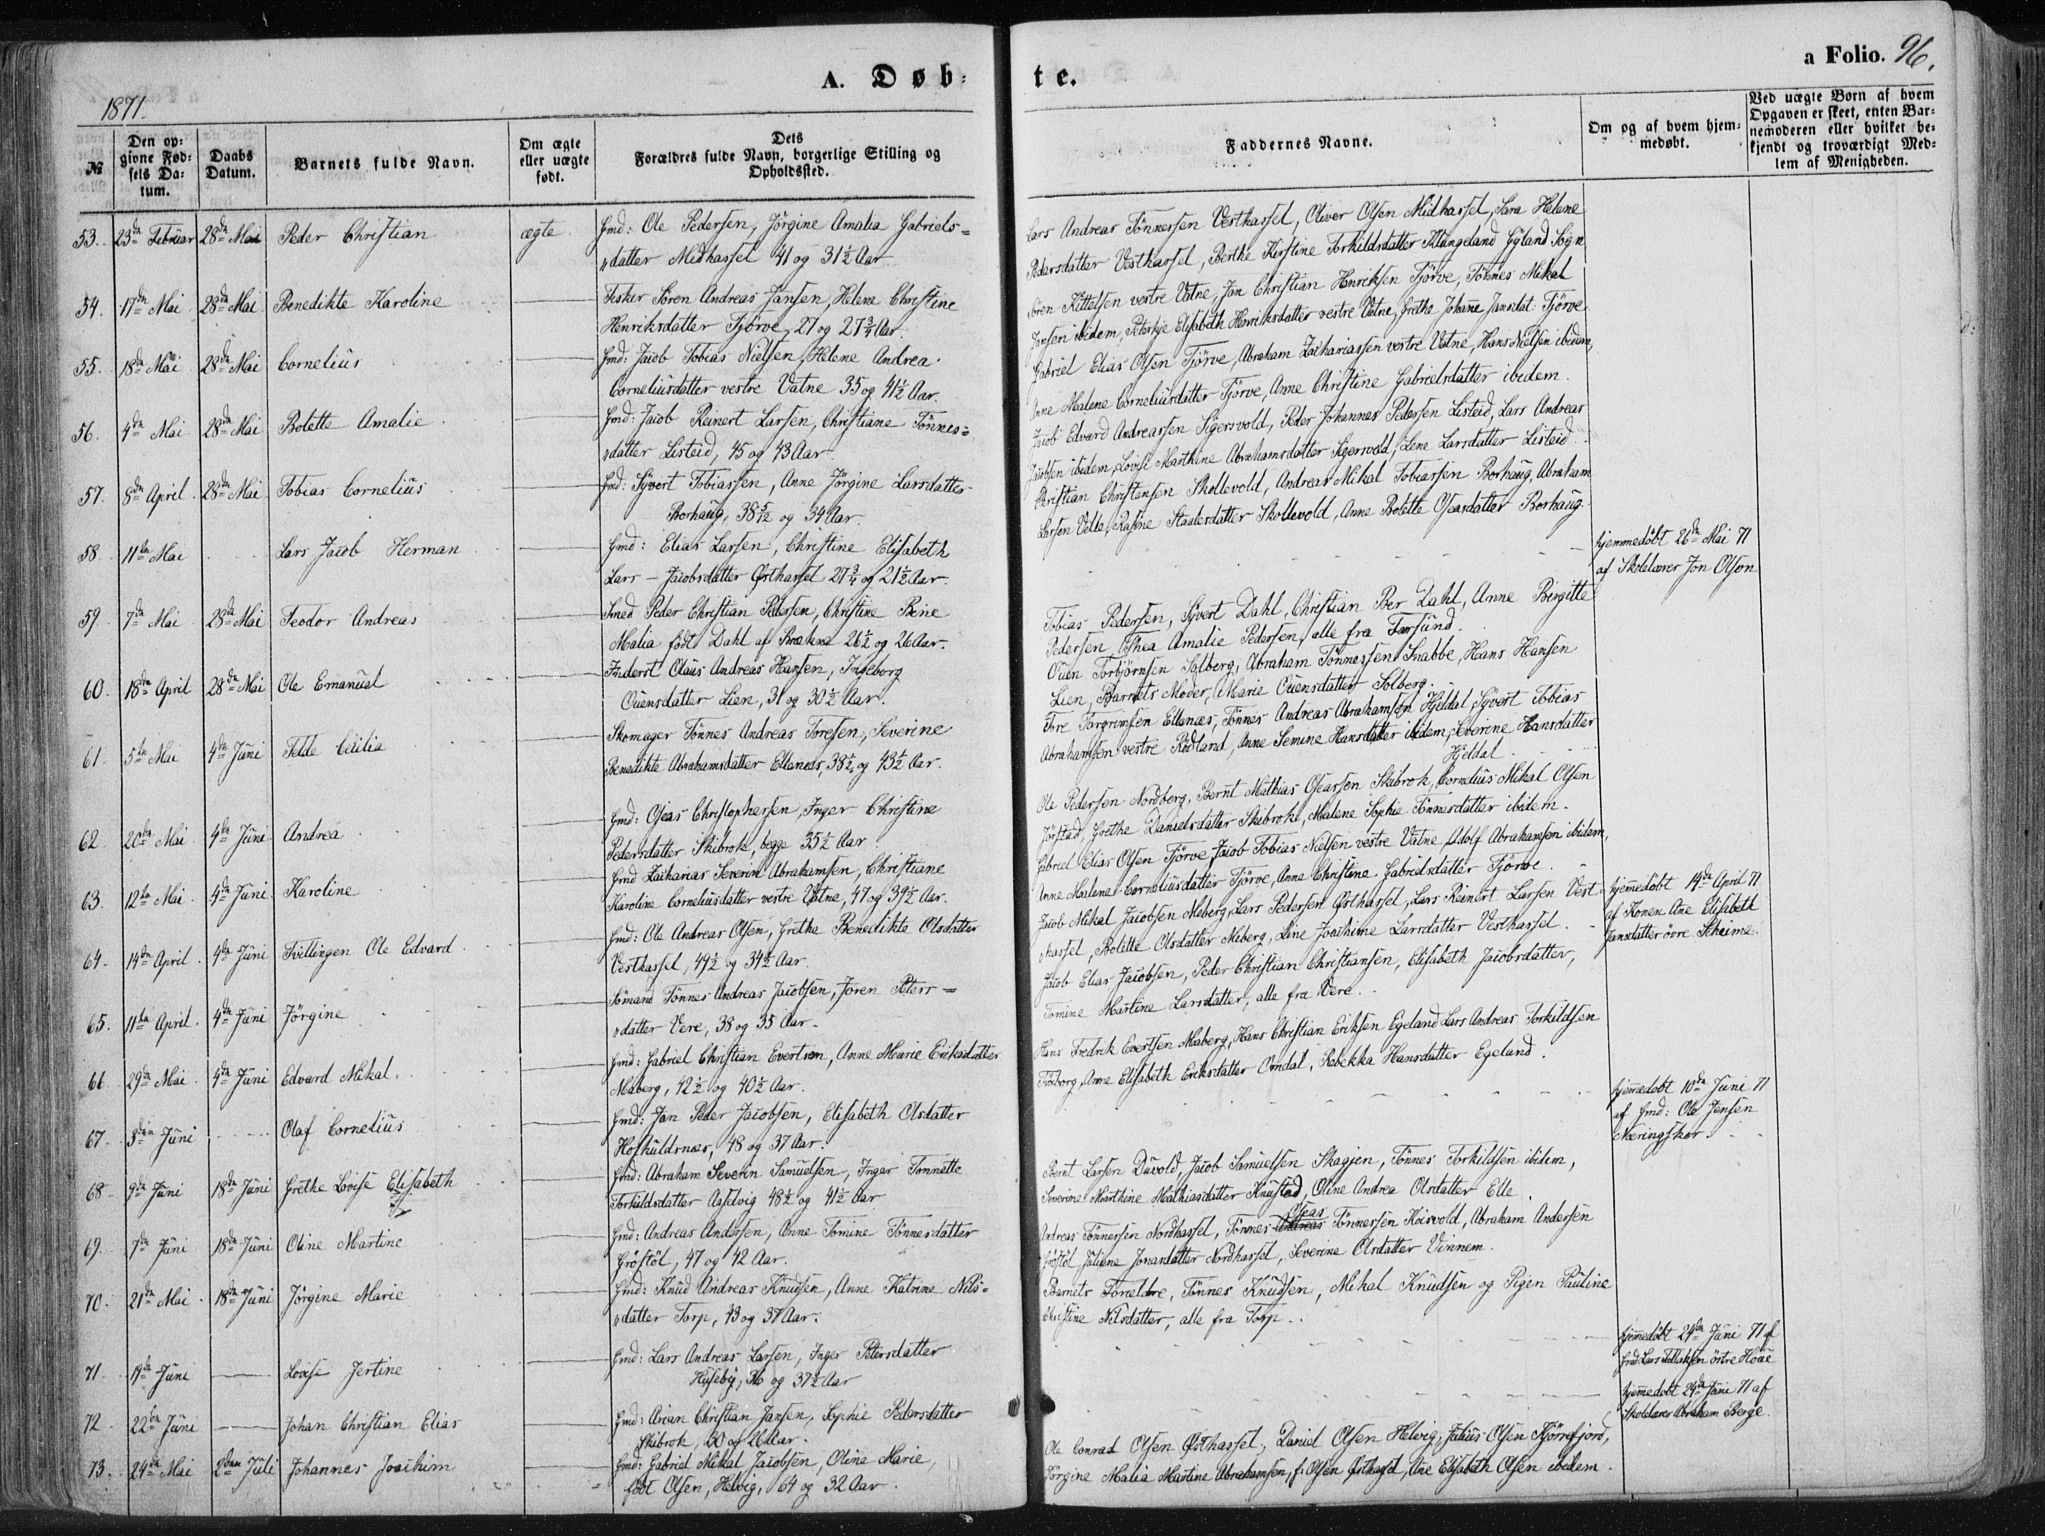 A. Døb-
te.
a Folio. 96.
1871.
№
Den opgivne Fødsels Datum.
Daabs Datum.
Barnets fulde Navn.
Om ægte eller uægte født.
Dets Forældres fulde Navn, borgerlige Stilling og Opholdssted.
Faddernes Navne.
Om og af hvem hjemmedøbt.
Ved uægte Børn af hvem Opgaven er skeet, enten Barnemoderen eller hvilket bekjendt og troværdigt Medlem af Menigheden.
53. 23de Februar 28de Mai Peder Christian ægte. Gmd: Ole Pedersen, Jörgine Amalia Gabriels=
datter Midhassel 41 og 31½ Aar.
Lars Andreas Tönnersen Vesthassel, Oliver Olsen Midhassel, Sara Helene
Pedersdatter Vesthassel, Berthe Kirstine Torkildsdatter Klungeland Gyland Sogn
54. 17de Mai 28de Mai Benedikte Karoline Fisker Sören Andreas Jansen, Helene Christine
Henriksdatter Tjörve, 27 og 27¾ Aar.
Sören Kittelsen vestre Vatne, Jan Christian Henriksen Tjörve, Tönnes Mikal
Jansen ibidem, Peterkje Elisabeth Henriksdatter vestre Vatne, Grethe Johane Jansdat: Tjörve.
55. 18de Mai 28de Mai Cornelius Gmd: Jacob Tobias Nielsen, Helene Andrea
Corneliusdatter vestre Vatne 35 og 41½ Aar.
Gabriel Elias Olsen Tjörve, Abraham Zachariassen vestre Vatne, Hans Nielsen ibidem,
Anne Malene Corneliusdatter Tjörve, Anne Christine Gabrielsdatter ibidem.
56. 4de Mai 28de Mai Bolette Amalie Gmd: Jacob Reinert Larsen, Christiane Tönnes=
datter Listeid, 45 og 43 Aar.
Jacob Edvard Andreassen Sigersvold, Peder Johannes Pedersen Listeid, Lars Andreas
Jacobsen ibidem, Lovise Marthine Abrahamsdatter Sigersvold, Lene Larsdatter Listeid.
57. 8de April 28de Mai Tobias Cornelius Gmd: Syvert Tobiassen, Anne Jörgine Larsdatter
Borhaug, 38 5/12 og 34 Aar.
Christian Christensen Skollevold, Andreas Mikal Tobiassen Borhaug, Abraham
Larsen Velle, Rasine Staalesdatter Skollevold, Anne Bolette Oseasdatter Borhaug
58. 11te Mai Lars Jacob Herman Gmd: Elias Larsen, Christine Elisabeth
Lars – Jacobsdatter Østhassel 27¾ og 21½ Aar.
hjemmedøbt 26de Mai 71
af Skolelærer Jon Olson
59. 7de Mai 28de Mai Teodor Andreas Smed Peder Christian Pedersen, Christine Beine
Malia født Dahl af Brækne 26½ og 26 Aar.
Tobias Pedersen, Syvert Dahl, Christian Ber Dahl, Anne Birgitte
Pedersen, Thea Amalie Pedersen, alle fra Farsund.
60. 18de April 28de Mai Ole Emanuel Inderst Olaus Andreas Hansen, Ingeborg
Ouensdatter Lien, 31 og 30½ Aar.
Ouen Torbjörnsen Solberg, Abraham Tönnessen Snabbe, Hans Hansen
Lien, Barnets Moder, Marie Ouensdatter Solberg.
61. 5te Mai 4de Juni Telde Cecilia Skomager Tönnes Andreas Toresen, Severine
Benedikte Abrahamsdatter Ellenæs, 38½ og 43½ Aar.
Tore Torgrimsen Ellenæs, Tönnes Andreas Abrahamsen Hjeldal, Syvert Tobias
Abrahamsen vestre Rödland, Anne Semine Hansdatter ibidem, Severine Hansdatter
Hjeldal
62. 20de Mai 4de Juni Andrea Gmd: Oseas Christophersen, Inger Christine
Pedersdatter Skibrok, begge 35½ Aar.
Ole Pedersen Nordberg, Bernt Mathias Oseassen Skibrok, Cornelius Mikal Olsen
Jörstad, Grethe Danielsdatter Skibrok, Malene Sophie Tönnesdatter ibidem.
63. 12te Mai 4de Juni Karoline Gmd Zacharias Severin Abrahamsen, Christiane
Karoline Corneliusdatter vestre Vatne, 47 og 39½ Aar.
Gabriel Elias Olsen Tjörve, Jacob Tobias Nielsen vestre Vatne, Adolf Abrahamsen ibidem,
Anne Malene Corneliusdatter Tjörve, Anne Christine Gabrielsdatter Tjörve.
64. 14de April 4de Juni Tvillingen Ole Edvard Gmd: Ole Andreas Olsen, Grethe Benedikte Olsdatter
Vesthassel, 49½ og 34½ Aar.
Jacob Mikal Jacobsen Meberg, Lars Pedersen Østhassel, Lars Reinert Larsen Vest-
hassel, Bolette Olsdatter Meberg, Line Joachime Larsdatter Vesthassel.
hjemmedøbt 14de April 71
af Konen Ane Elisabeth
Jansdatter övre Skeime.
65. 11te April 4de Juni Jörgine Sömand Tönnes Andreas Jacobsen, Joren Peters=
datter Vere, 38 og 35 Aar.
Jacob Elias Jacobsen, Peder Christian Christiansen, Elisabeth Jacobsdatter,
Tomine Martine Larsdatter, alle fra Vere.
66. 29de Mai 4de Juni Edvard Mikal. Gmd: Gabriel Christian Evertsen, Anne Marie Eriksdatter
Maberg, 42½ og 40½ Aar.
Hans Fredrik Evertsen Maberg, Hans Christian Eriksen Egeland, Lars Andreas Torkildsen
Fröborg, Anne Elisabeth Eriksdatter Omdal, Rebekka Hansdatter Egeland.
67. Juni Olaf Cornelius Gmd: Jan Peder Jacobsen, Elisabeth Olsdatter
Hoskuldsnæs, 48 og 37 Aar.
hjemmedøbt 10de Juni 71
af Gmd: Ole Jensen
Næringskor.
68. 9de Juni 18de Juni Grethe Lovise Elisabeth Gmd: Abraham Severin Samuelsen, Inger Tonnette
Torkildsdatter Asselvig 48½ og 41½ Aar
Bernt Larsen Duvold, Jacob Samuelsen Skagjen, Tönnes Torkildsen ibidem,
Severine Marthine Mathiasdatter Knustad, Oline Andrea Olsdatter Elle.
69. 7de Juni 18de Juni Oline Martine Gmd: Andreas Andersen, Anne Tomine Tönnesdatter
Gröstöl, 47 og 42 Aar.
Oseas
Andreas Tönnersen Nordhassel, Tönnes Andreas Tönnersen Koisvold, Abraham Andersen
Gröstöl, Juliene Jonasdatter Nordhassel, Severine Olsdatter Vinnem.
70. 21de Mai 18de Juni Jörgine Marie Gmd: Knud Andreas Knudsen, Anne Katrine Nils-
datter Torp, 43 og 37 Aar.
Barnets Forældre, Tönnes Knudsen, Mikal Knudsen og Pigen Pauline
Christine Nilsdatter, alle fra Torp.
71. 19de Juni Lovise Jertine Gmd: Lars Andreas Larsen, Inger Petersdatter
Huseby, og 37½ Aar
hjemmedøbt 24de Juni 71 af
Gmd Lars Tollaksen östre Houe
72 22de Juni Johan Christian Elias Gmd: Arian Christian Jansen, Sophie Pedersdatter
Skibrok, 30 og 26 Aar.
hjemmedøbt 24de Juni 71 af
Skolelærer Abraham Berge.
73. 24de Mai 2den Juli Johannes Joachim Gmd: Gabriel Mikal Jacobsen, Oline Marie,
født Olsen, Helvig, 64 og 32 Aar.
Ole Conrad Olsen Østhassel, Daniel Olsen Helvig, Julius Olsen Kjörrefjord,
Jörgine Malia Martine Abrahamsen, f: Olsen Østhassel, Ane Elisabeth Olsen ibidem.